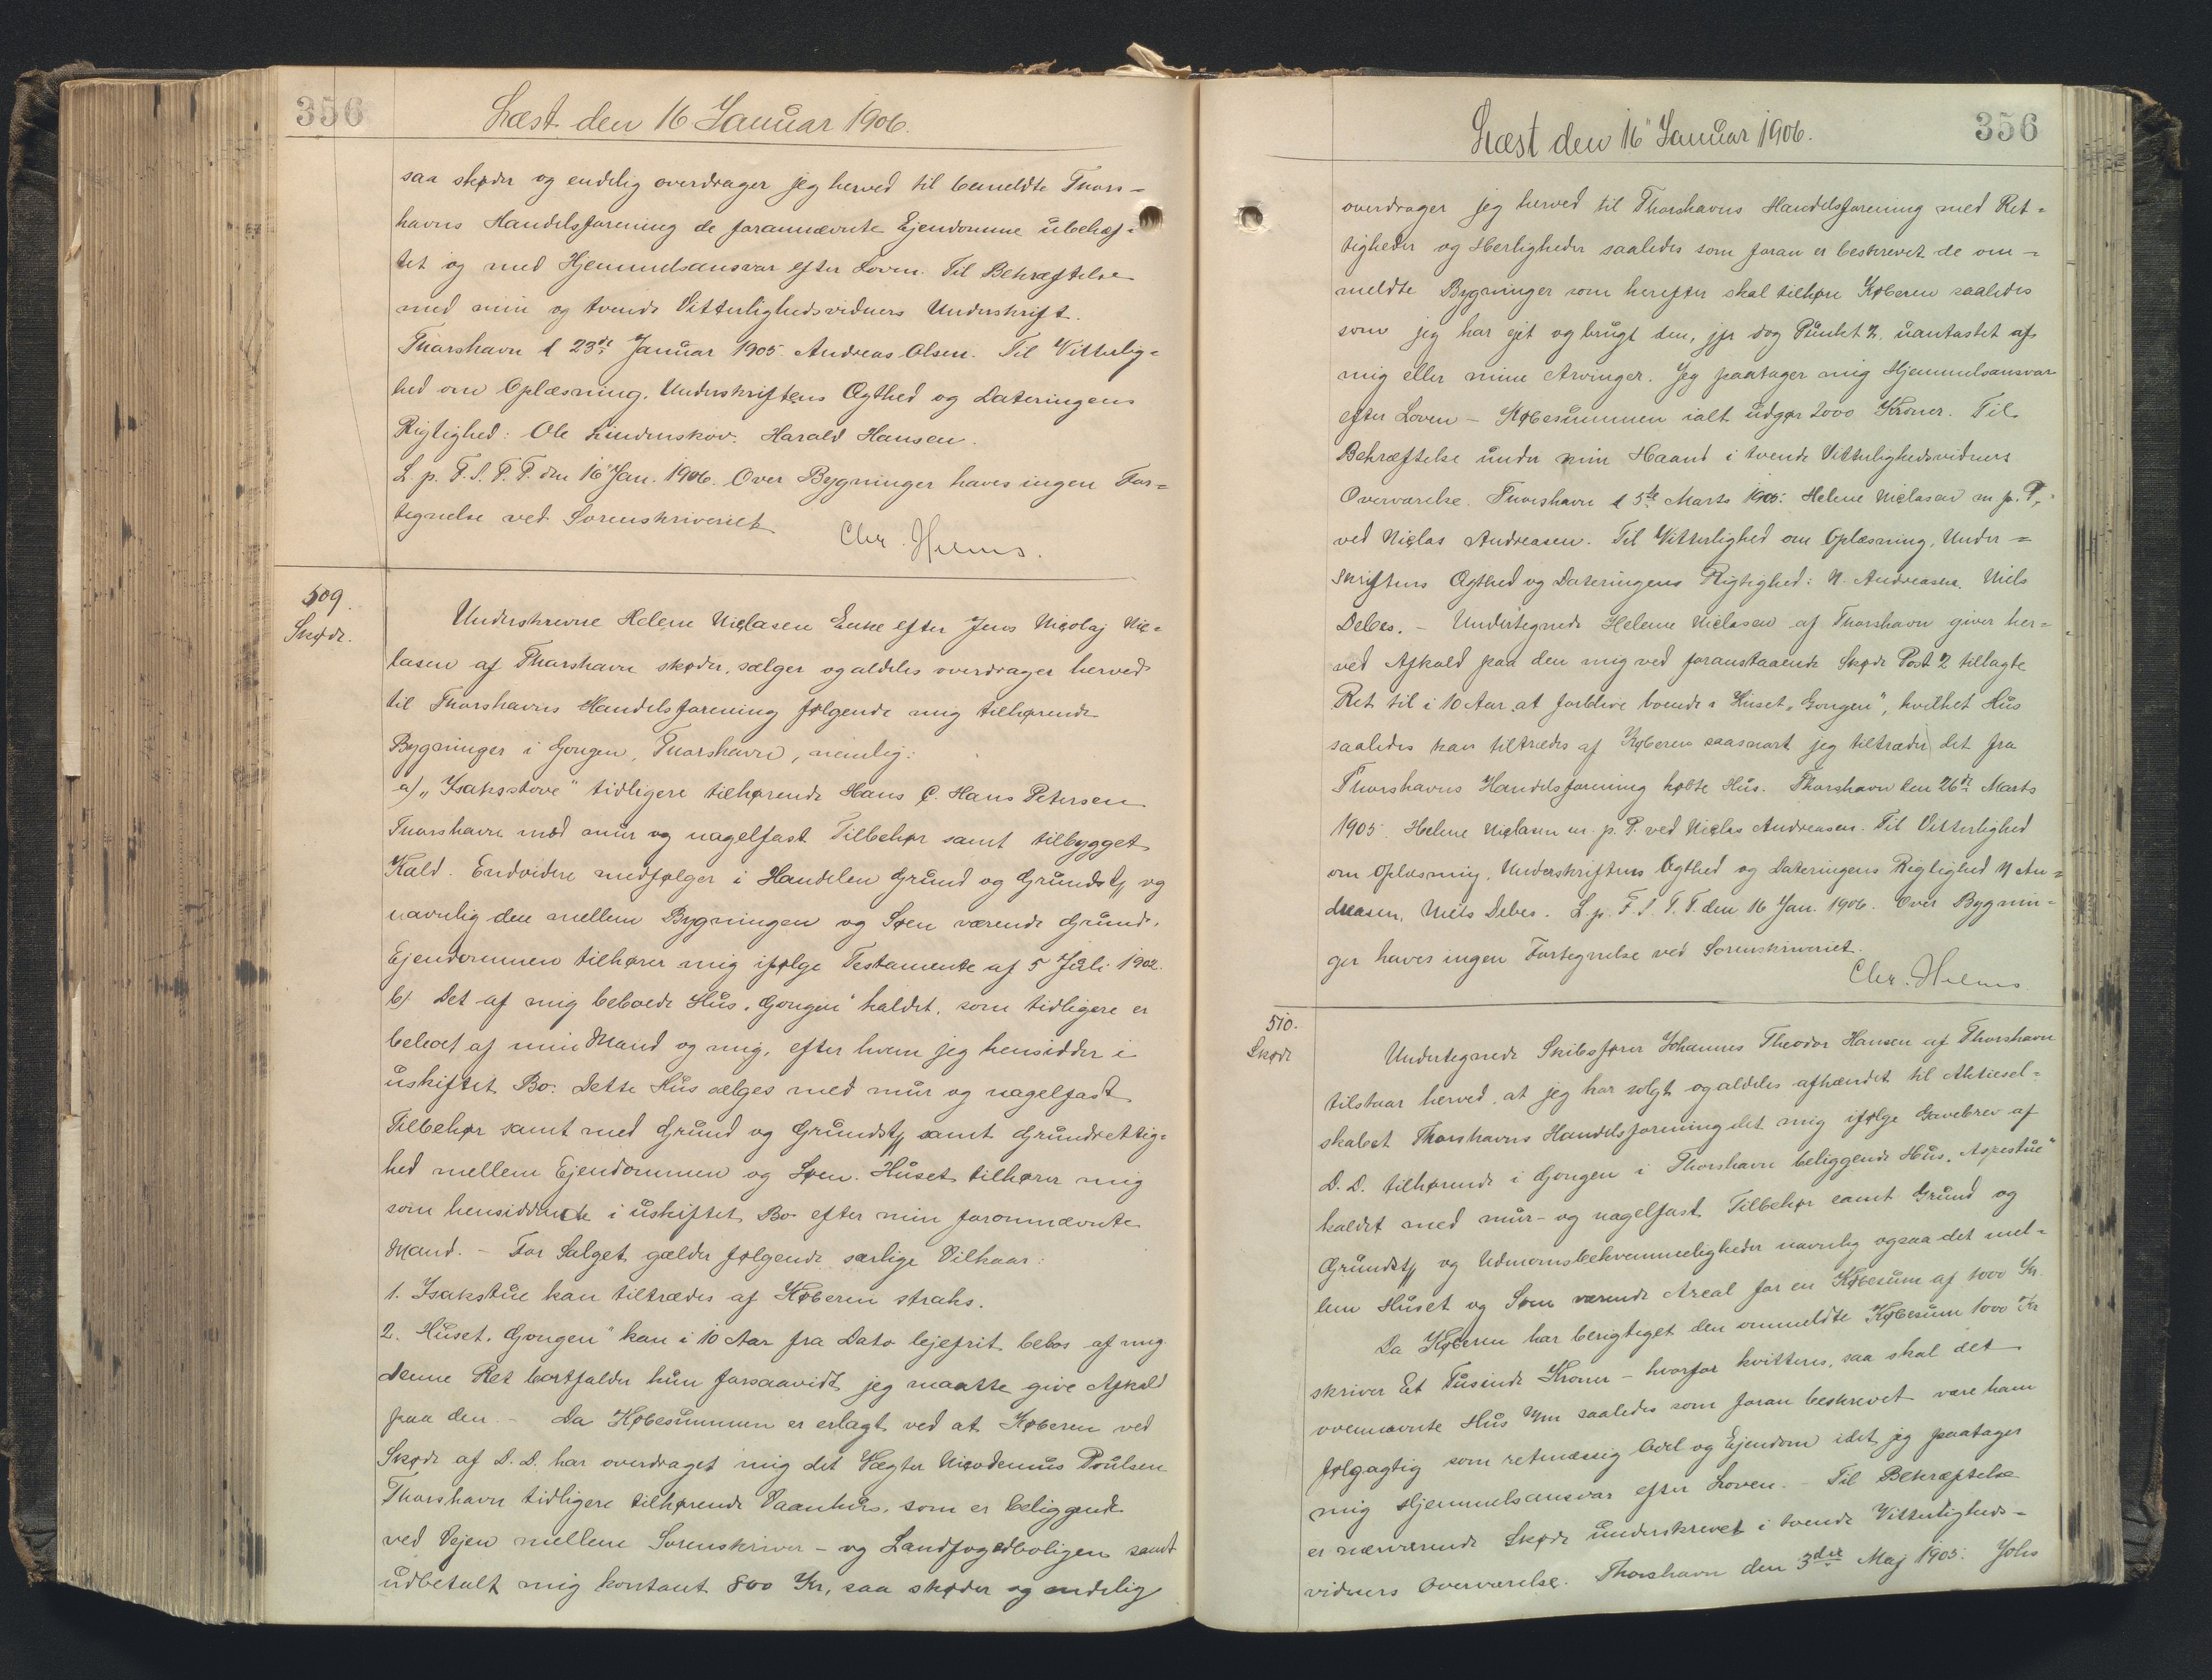 356
Læst den 16 Januar 1906.
saa skøder og endelig overdrager jeg herved til bemeldte Thors-
havns Handelsforening de forannævnte Ejendomme ubehæf-
tet og med Hjemmelsansvar efter Loven. Til Bekræftelse
med min og tvende Vitterlighedsvidners Underskrift.
Thorshavn d 23de Januar 1905. Andreas Olsen. Til Vitterlig-
hed om Oplæsning, Underskriftens Ægthed og Dateringens
Rigtighed: Ole Lindenskov. Harald Hansen.
L. p. F. S. T. T. den 16" Jan. 1906. Over Bygninger haves ingen For-
tegnelse ved Sorenskriveriet
Chr. Helms.
509.
Skøde.
Underskrevne Helene Niclasen Enke efter Jens Nicolaj Nic-
lasen af Thorshavn skøder, sælger og aldeles overdrager herved
til Thorshavns Handelsforening følgende mig tilhørende
Bygninger i Gongen, Thorshavn, nemlig:
a) „Isaksstove" tidligere tilhørende Hans C. Hans Petersen
Thorshavn med mur og nagelfast Tilbehør samt tilbygget
Kald. Endvidere medfølger i Handelen Grund og Grundstj og
navnlig den mellem Bygningen og Søen værende Grund.
Ejendommen tilhører mig ifølge Testamente af 5 Juli 1902.
b) Det af mig beboede Hus „Gongen" kaldet, som tidligere er
beboet af min Mand og mig, efter hvem jeg hensidder i
uskiftet Bo. Dette Hus sælges med mur og nagelfast
Tilbehør samt med Grund og Grundstj samt Grundrettig-
hed mellem Ejendommen og Søen. Huset tilhører mig
som hensiddende i uskiftet Bo efter min forannævnte
Mand. – For Salget gælder følgende særlige Vilkaar:
1. Isakstue kan tiltrædes af Køberen straks.
2. Huset „Gongen" kan i 10 Aar fra Dato lejefrit bebos af mig
denne Ret bortfalder kun forsaavidt jeg maatte give Afkald
paa den. – Da Købesummen er erlagt ved at Køberen ved
Skøde af D. D. har overdraget mig det Vægter Nicodemus Poulsen
Thorshavn tidligere tilhørende Vaanhus, som er beliggende
ved Vejen mellem Sorenskriver- og Landfogedboligen samt
udbetalt mig kontant 800 Kr, saa skøder og endelig
Læst den 16" Januar 1906.
356
overdrager jeg herved til Thorshavns Handelsforening med Ret-
tigheder og Herligheder saaledes som foran er beskrevet de om-
meldte Bygninger som herefter skal tilhøre Køberen saaledes
som jeg har ejet og brugt den, jfr dog Punkt 2, uantastet af
mig eller mine Arvinger. Jeg paatager mig Hjemmelsansvar
efter Loven – Købesummen ialt udgør 2000 Kroner. Til
Bekræftelse under min Haand i tvende Vitterlighedsvidners
Overværelse. Thorshavn d 5te Marts 1905: Helene Niclasen m. p. P.
ved Niclas Andreasen. Til Vitterlighed om Oplæsning, Under-
skriftens Ægthed og Dateringens Rigtighed: N. Andreasen. Niels
Debes. – Undertegnede Helene Niclasen af Thorshavn giver her-
ved Afkald paa den mig ved foranstaaende Skøde Post 2 tillagte
Ret til i 10 Aar at forblive boende i Huset „Gongen", hvilket Hus
saaledes kan tiltrædes af Køberen saasnart jeg tiltræder det fra
Thorshavns Handelsforening købte Hus. Thorshavn den 26de Marts
1905. Helene Niclasen m. p. P. ved Niclas Andreasen. Til Vitterlighed
om Oplæsning, Underskriftens Ægthed og Dateringens Rigtighed N An-
dreasen, Niels Debes. L. p. F. S. T. T. den 16 Jan. 1906. Over Bygnin-
ger haves ingen Fortegnelse ved Sorenskriveriet.
Chr. Helms.
510.
Skøde
Undertegnede Skibsfører Johannes Theodor Hansen af Thorshavn
tilstaar herved, at jeg har solgt og aldeles afhændet til Aktiesel-
skabet Thorshavns Handelsforening det mig ifølge Gavebrev af
D. D. tilhørende i Gongen i Thorshavn beliggende Hus „Aspestue"
kaldet med mur- og nagelfast Tilbehør samt Grund og
Grundstj og Udmarksbekvemmeligheder navnlig ogsaa det mel-
lem Huset og Søen værende Areal for en Købesum af 1000 Kr.
Da Køberen har berigtiget den ommeldte Købesum 1000 Kr
skriver Et Tusinde Kroner – hvorfor kvitteres, saa skal det
ovennævnte Hus mm saaledes som foran beskrevet være ham
følgagtig som retmæssig Odel og Ejendom idet jeg paatager
mig Hjemmelsansvar efter Loven. – Til Bekræftelse
er nærværende Skøde underskrevet i tvende Vitterligheds-
vidners Overværelse. Thorshavn den 3die Maj 1905. Johs